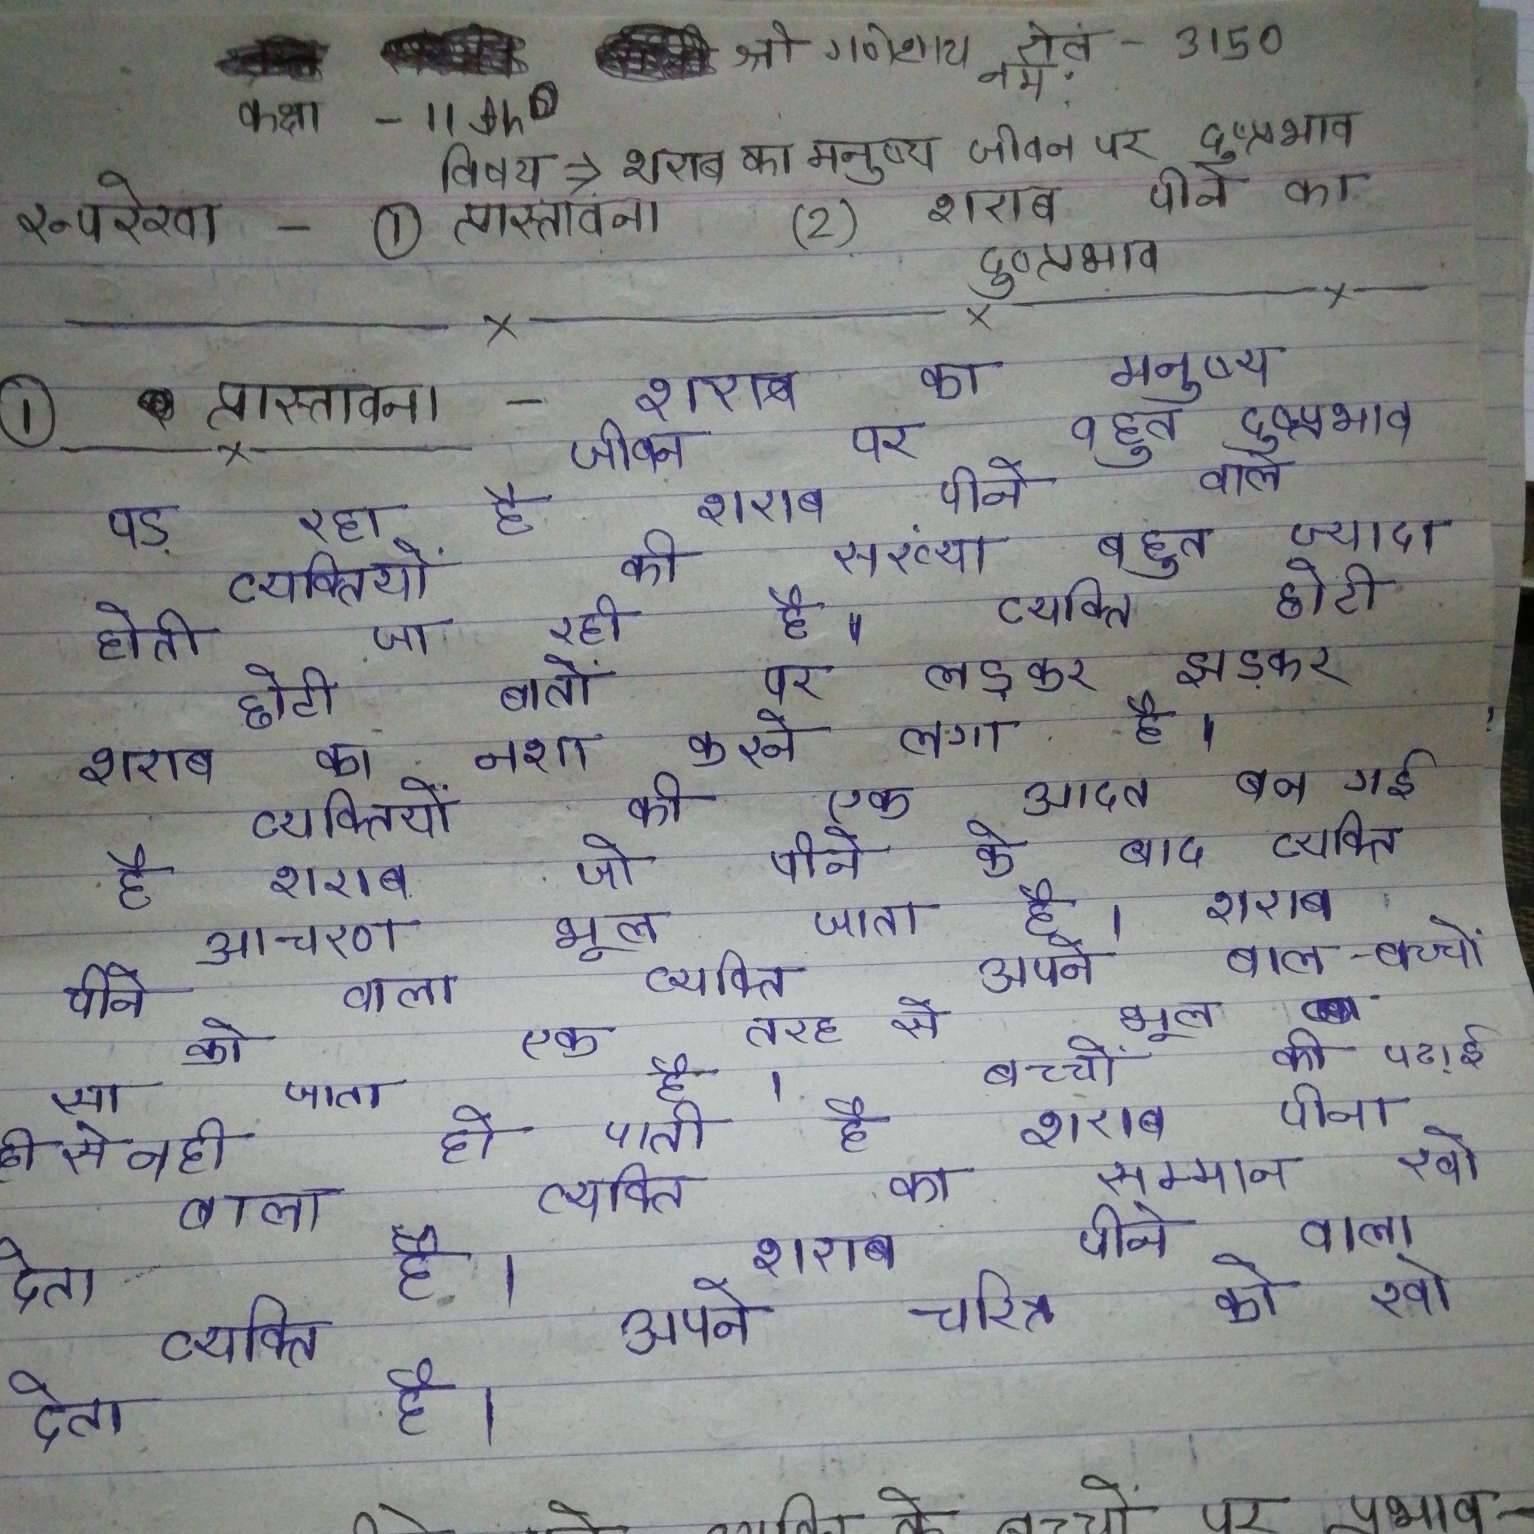 श्री गणेशाय नमः रोल नं - 3150
कक्षा - 11th
विषय ⇒ शराब का मनुष्य जीवन पर दुष्प्रभाव
रूपरेखा - ① प्रास्तावना (2) शराब पीने का
दुष्प्रभाव
① प्रास्तावना - शराब का मनुष्य
जीवन पर बहुत दुष्प्रभाव
पड़ रहा है शराब पीने वाले
व्यक्तियों की संख्या बहुत ज्यादा
होती जा रही है। व्यक्ति छोटी
छोटी बातों पर लड़कर झड़कर
शराब का नशा करने लगा है।
व्यक्तियों की एक आदत बन गई
है शराब जो पीने के बाद व्यक्ति
आचरण भूल जाता है। शराब
पीने वाला व्यक्ति अपने बाल-बच्चों
को एक तरह से भूल
सा जाता है। बच्चों की पढ़ाई
ही से नही हो पाती है शराब पीना
वाला व्यक्ति का सम्मान खो
देता है। शराब पीने वाला
व्यक्ति अपने चरित्र को खो
देता है।
व्यक्ति के बच्चों पर प्रभाव-